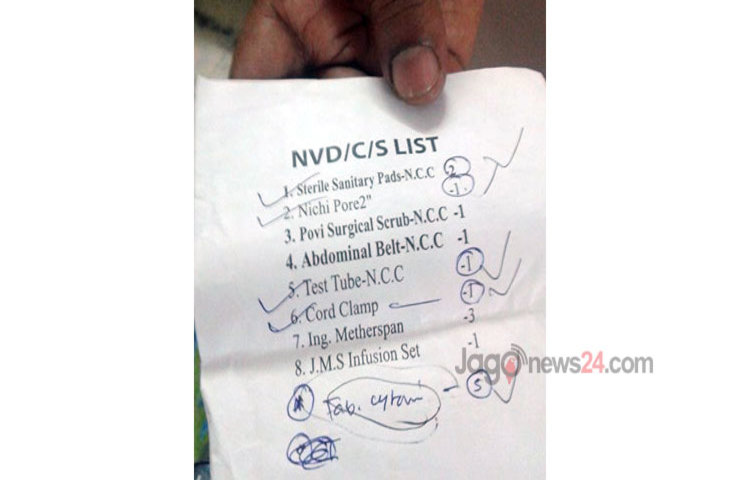 NVD/C/S LIST
1. Sterile Sanitary Pads-N.C.C 2
2. Nichi Pore2" -1
3. Povi Surgical Scrub-N.C.C -1
4. Abdominal Belt-N.C.C -1
5. Test Tube-N.C.C -1
6. Cord Clamp -1
7. Ing. Metherspan -3
8. J.M.S Infusion Set -1
Tab. - 5
Jagonews24.com